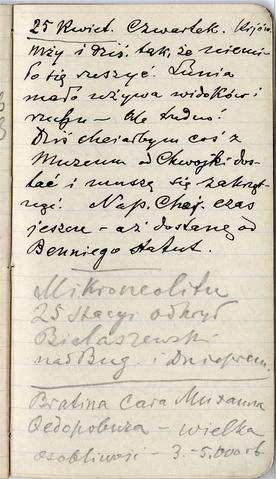 25 Kwiet. Czwartek. Kijów.
Mży i dziś tak, że niemi-
ło się ruszyć. Lunia
mało używa widoków i
ruchu – ale trudno!
Dziś chciałbym coś z
Muzeum od Chwojki dos-
tać i muszę się zakrząt-
nąć. Nap. Chęj. czas
jeszcze – aż dostanę od
Benniego statut.
Mikroneolitu
25 stacyi odkrył
Bielaszewski
nad Bug. i Dnieprem.
Bratina Cara Michaiła
Fedorowicza – wielka
osobliwość – 3.-5.000 rb.